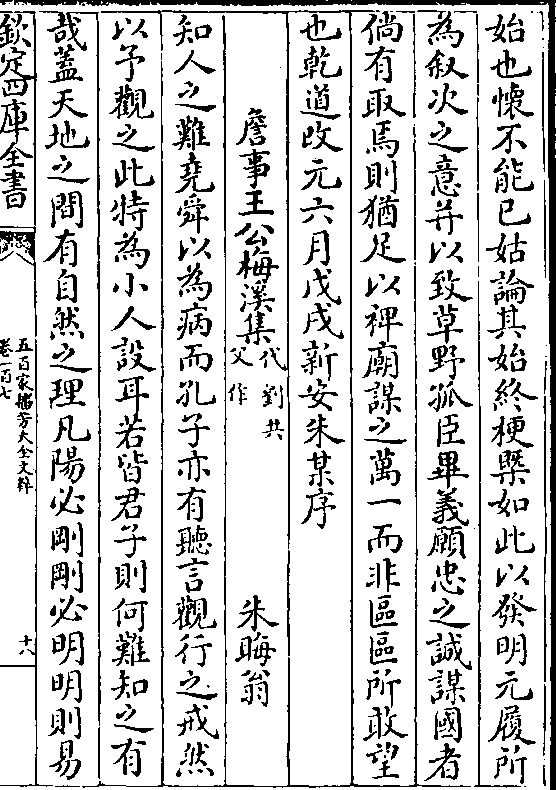 始也懷不能已姑論其始終梗槩如此以發明元履所
為叙次之意并以致草野孤臣畢義願忠之誠謀國者
倘有取焉則猶足以裨廟謀之萬一而非區區所敢望
也乾道改元六月戊戌新安朱某序
詹事王公梅溪集代劉共父作 朱晦翁
知人之難堯舜以為病而孔子亦有聽言觀行之戒然
以予觀之此特為小人設耳若皆君子則何難知之有
哉盖天地之間有自然之理凡陽必剛剛必明明則易
欽定四庫全書
五百家播芳大全文粹
卷一百七
十八